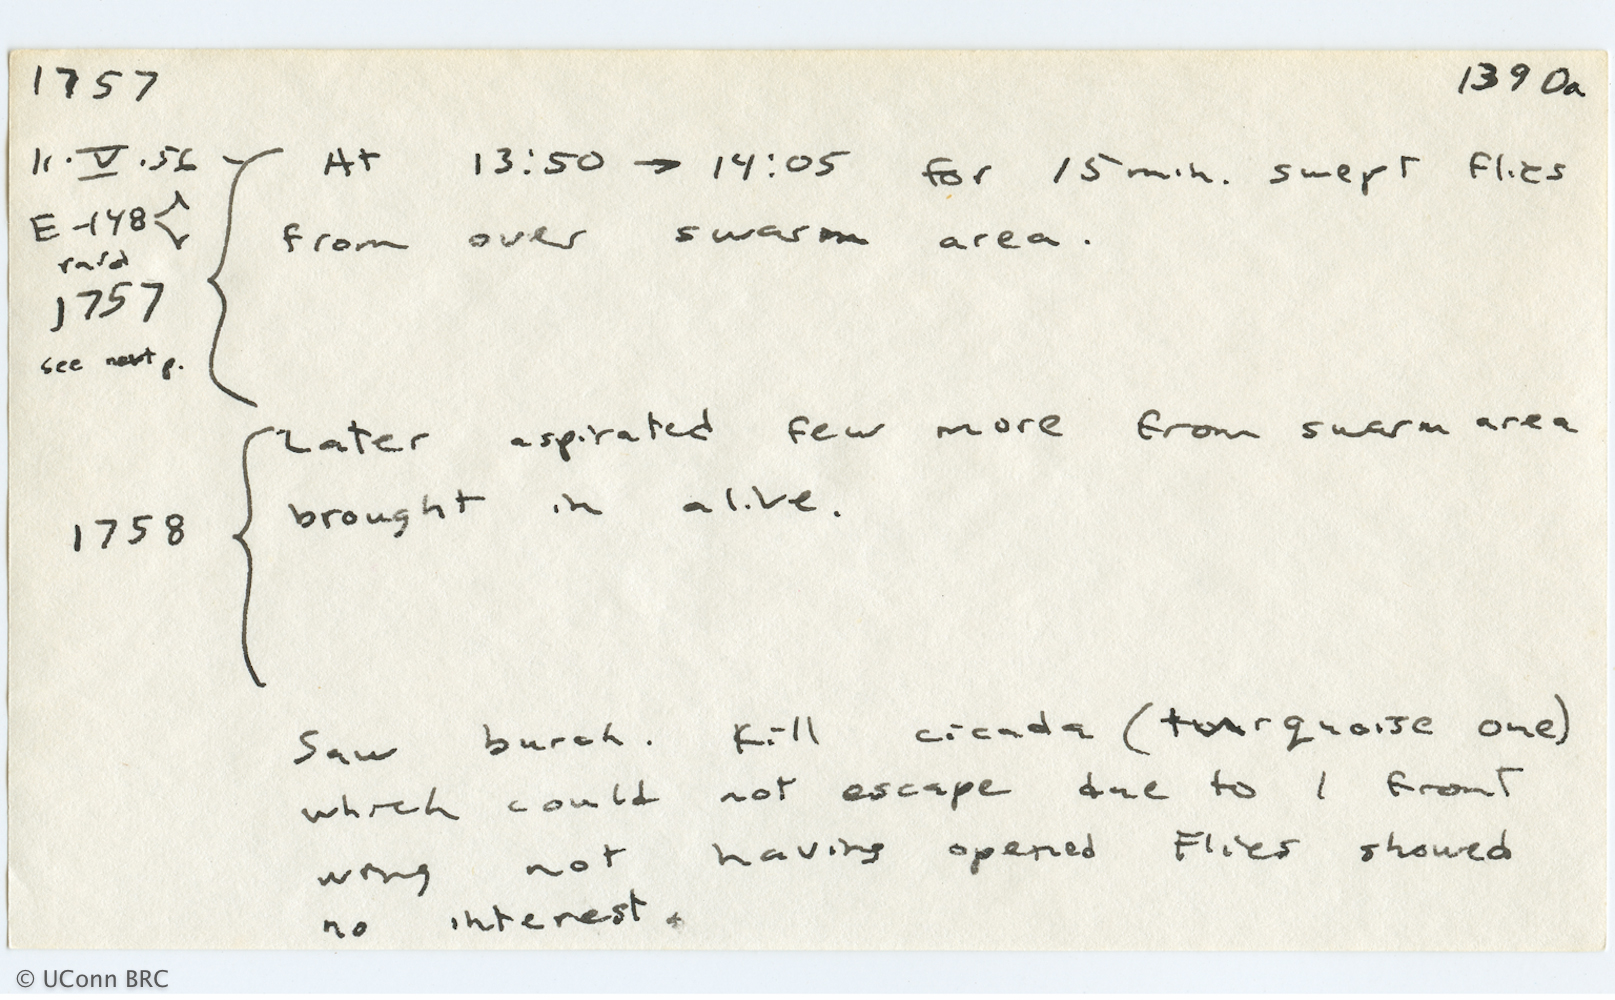 1757 1390a
11.V.56 At 13:50 → 14:05 for 15 min. swept flies
E-148 from over swarm area.
raid
1757
see next p.
Later aspirated few more from swarm area
1758 brought in alive.
Saw burch. Kill cicada (turquoise one)
which could not escape due to 1 front
wing not having opened Flies showed
no interest.
© UConn BRC